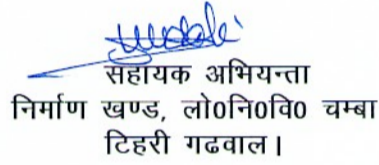 सहायक अभियन्ता
निर्माण खण्ड, लो0नि0वि0 चम्बा
टिहरी गढवाल।